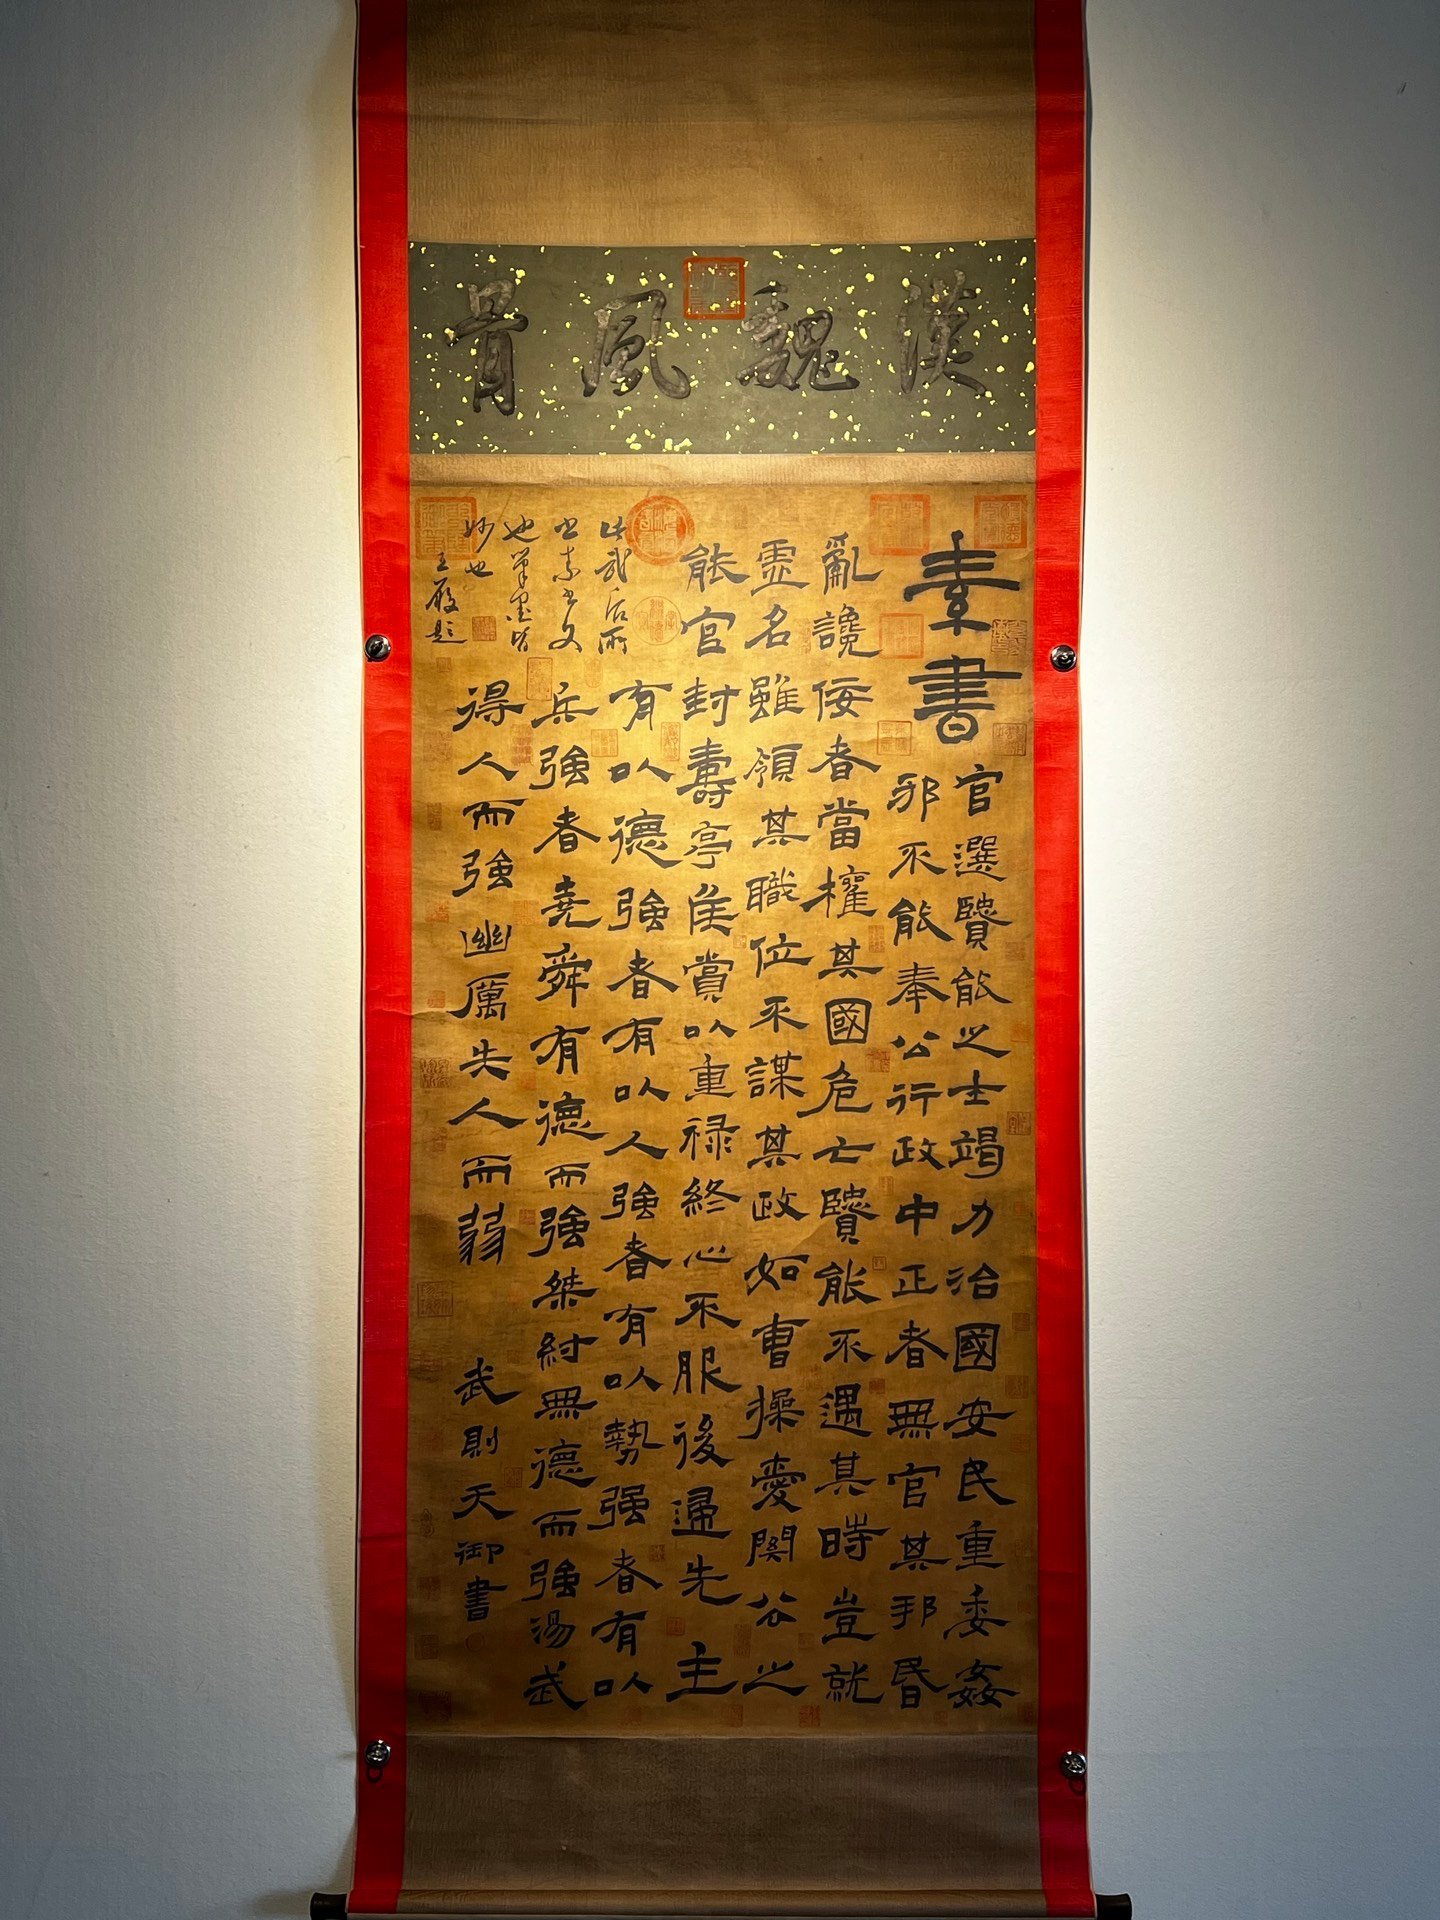 漢魏風骨
素書
官選賢能之士竭力治國安民重委姦
邪不能奉公行政中正者無官其邦昏
亂讒佞者當權其國危亡賢能不遇其時豈就
虛名雖領其職位不謀其政如曹操愛関公之
能官封壽亭侯賞以重禄終心不服後歸先主
有以德強者有以人強者有以勢强者有以
兵強者堯舜有德而強桀紂無德而強湯武
得人而強幽厲失人而弱
武則天御書
此武后所
書素書文
也筆墨皆
妙也
題